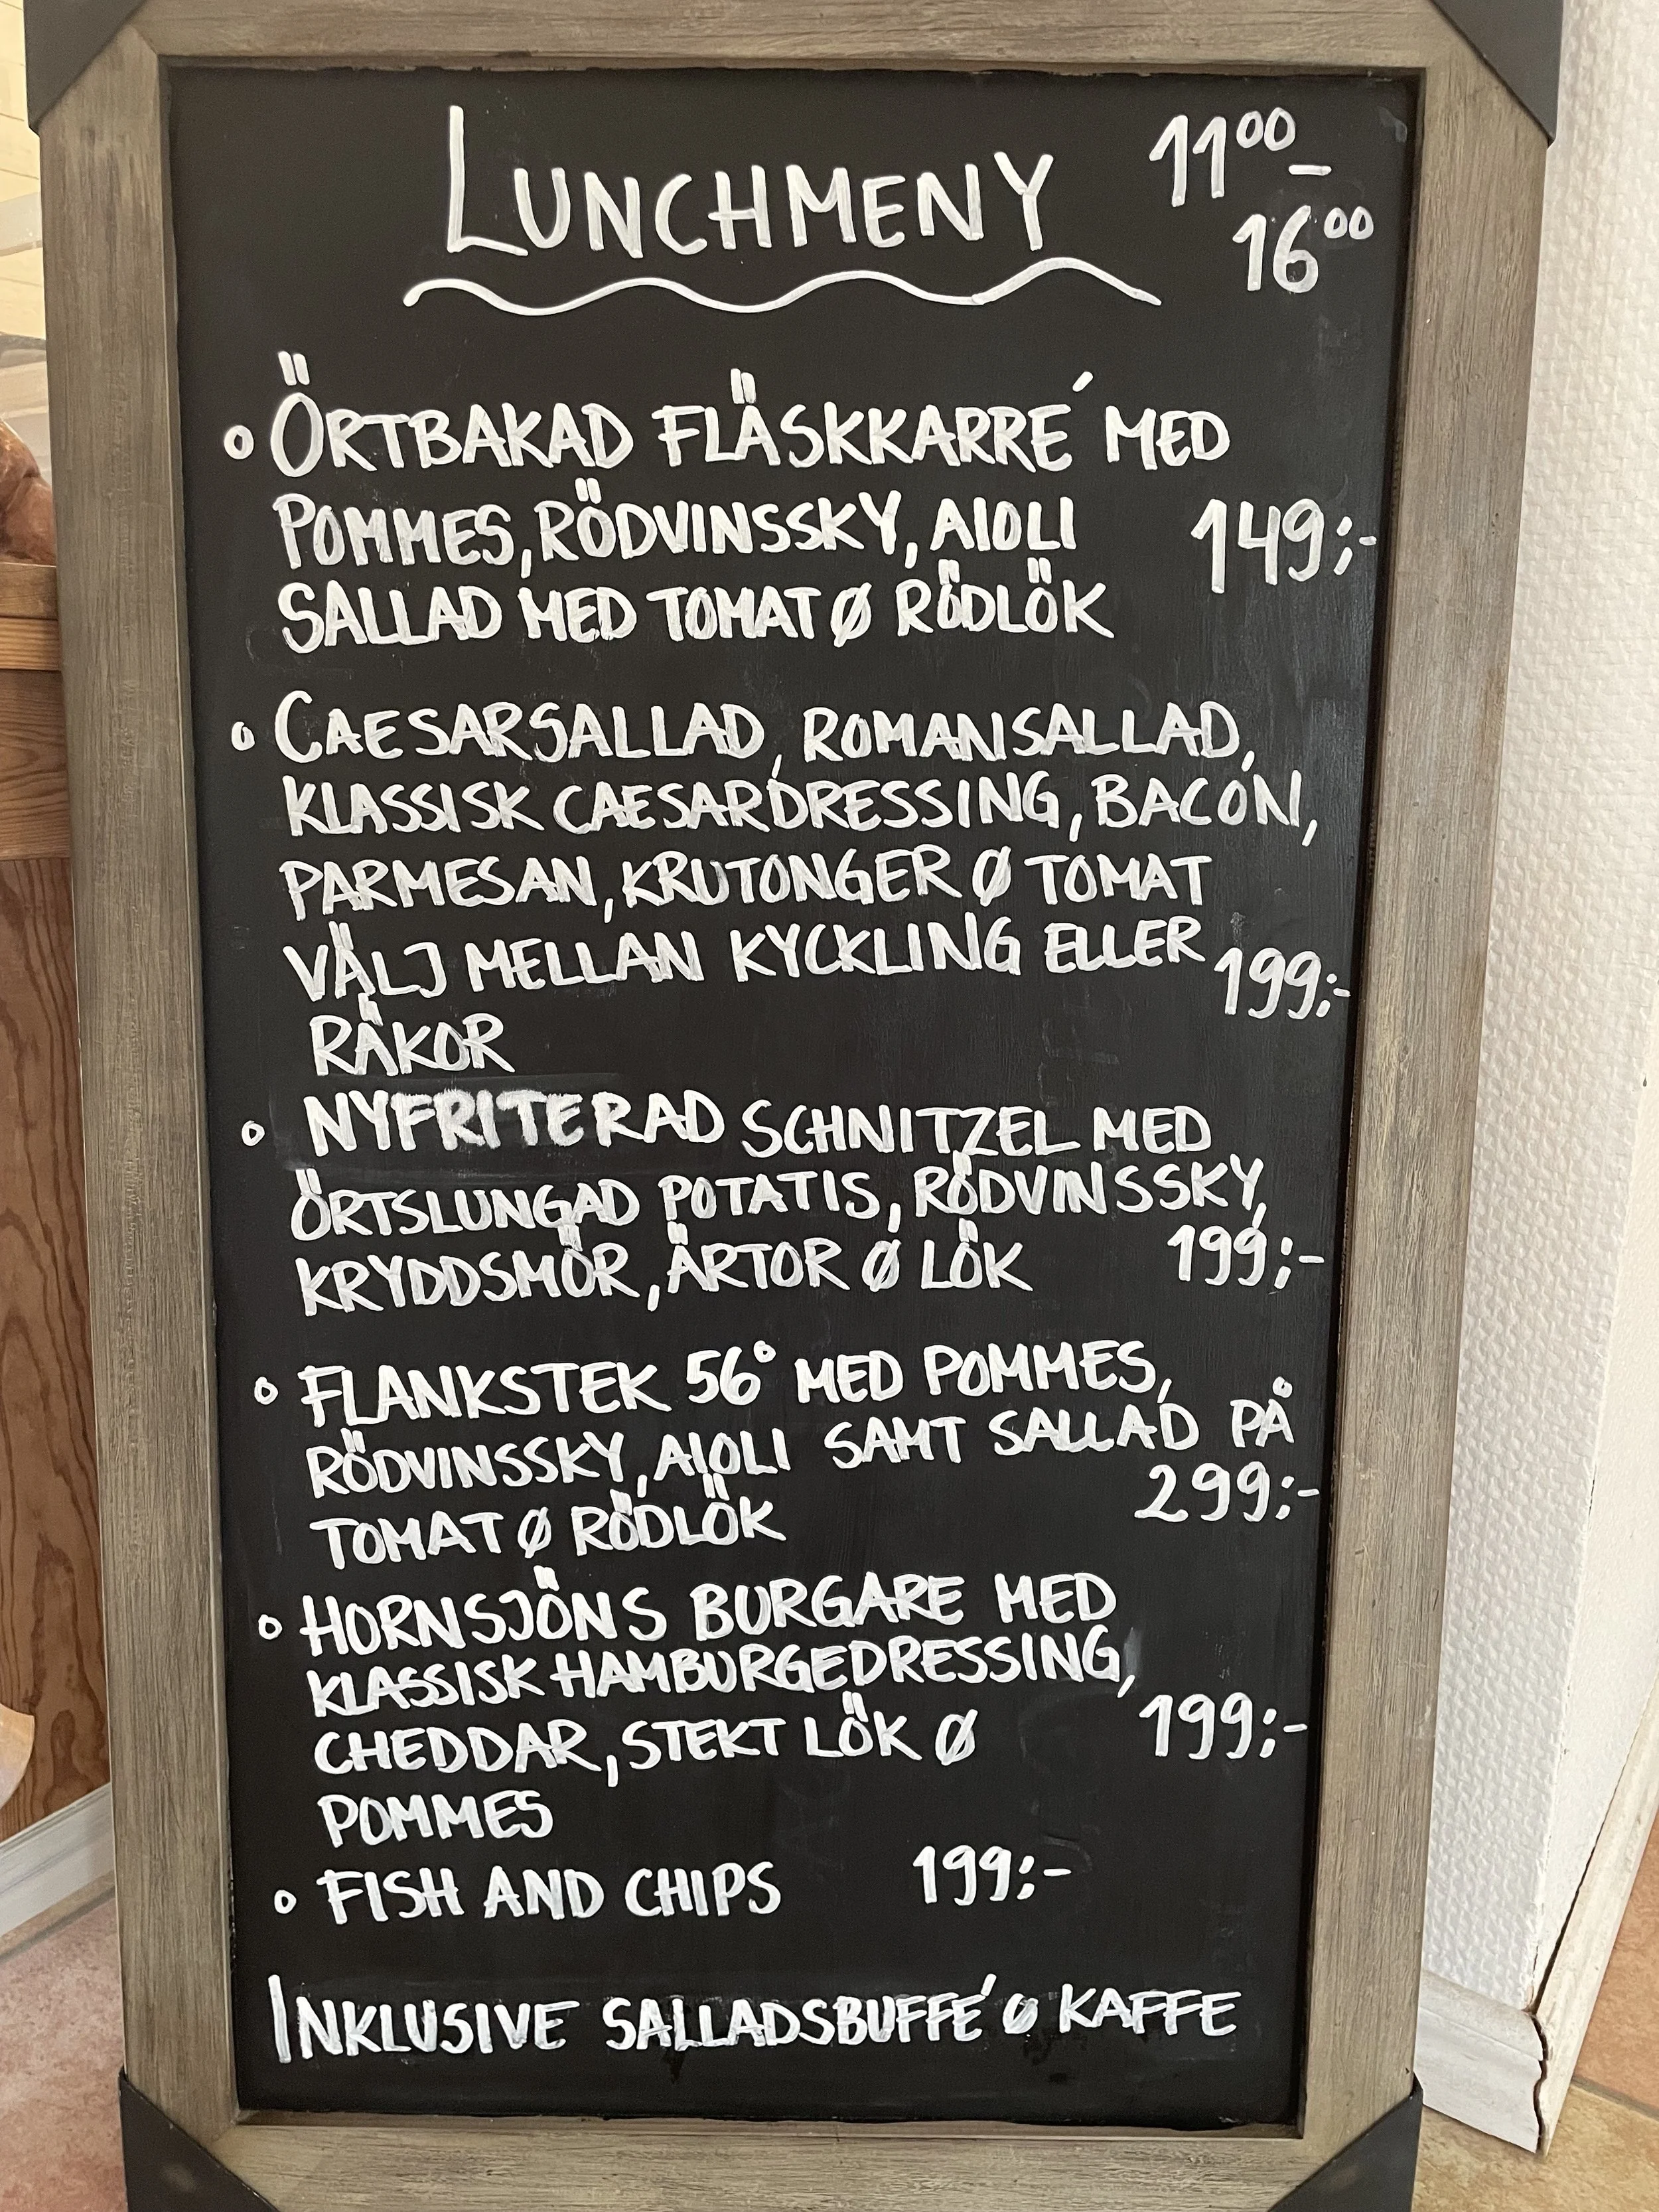 LUNCHMENY 11⁰⁰–
16⁰⁰
° ÖRTBAKAD FLÄSKKARRÉ MED
POMMES, RÖDVINSSKY, AIOLI 149:-
SALLAD MED TOMAT Ø RÖDLÖK
° CAESARSALLAD, ROMANSALLAD,
KLASSISK CAESARDRESSING, BACON,
PARMESAN, KRUTONGER Ø TOMAT
VÄLJ MELLAN KYCKLING ELLER 199:-
RÄKOR
° NYFRITERAD SCHNITZEL MED
ÖRTSLUNGAD POTATIS, RÖDVINSSKY,
KRYDDSMÖR, ÄRTOR Ø LÖK 199:-
° FLANKSTEK 56° MED POMMES,
RÖDVINSSKY, AIOLI SAMT SALLAD PÅ
TOMAT Ø RÖDLÖK 299:-
° HORNSJÖNS BURGARE MED
KLASSISK HAMBURGEDRESSING,
CHEDDAR, STEKT LÖK Ø 199:-
POMMES
° FISH AND CHIPS 199:-
INKLUSIVE SALLADSBUFFÉ Ø KAFFE